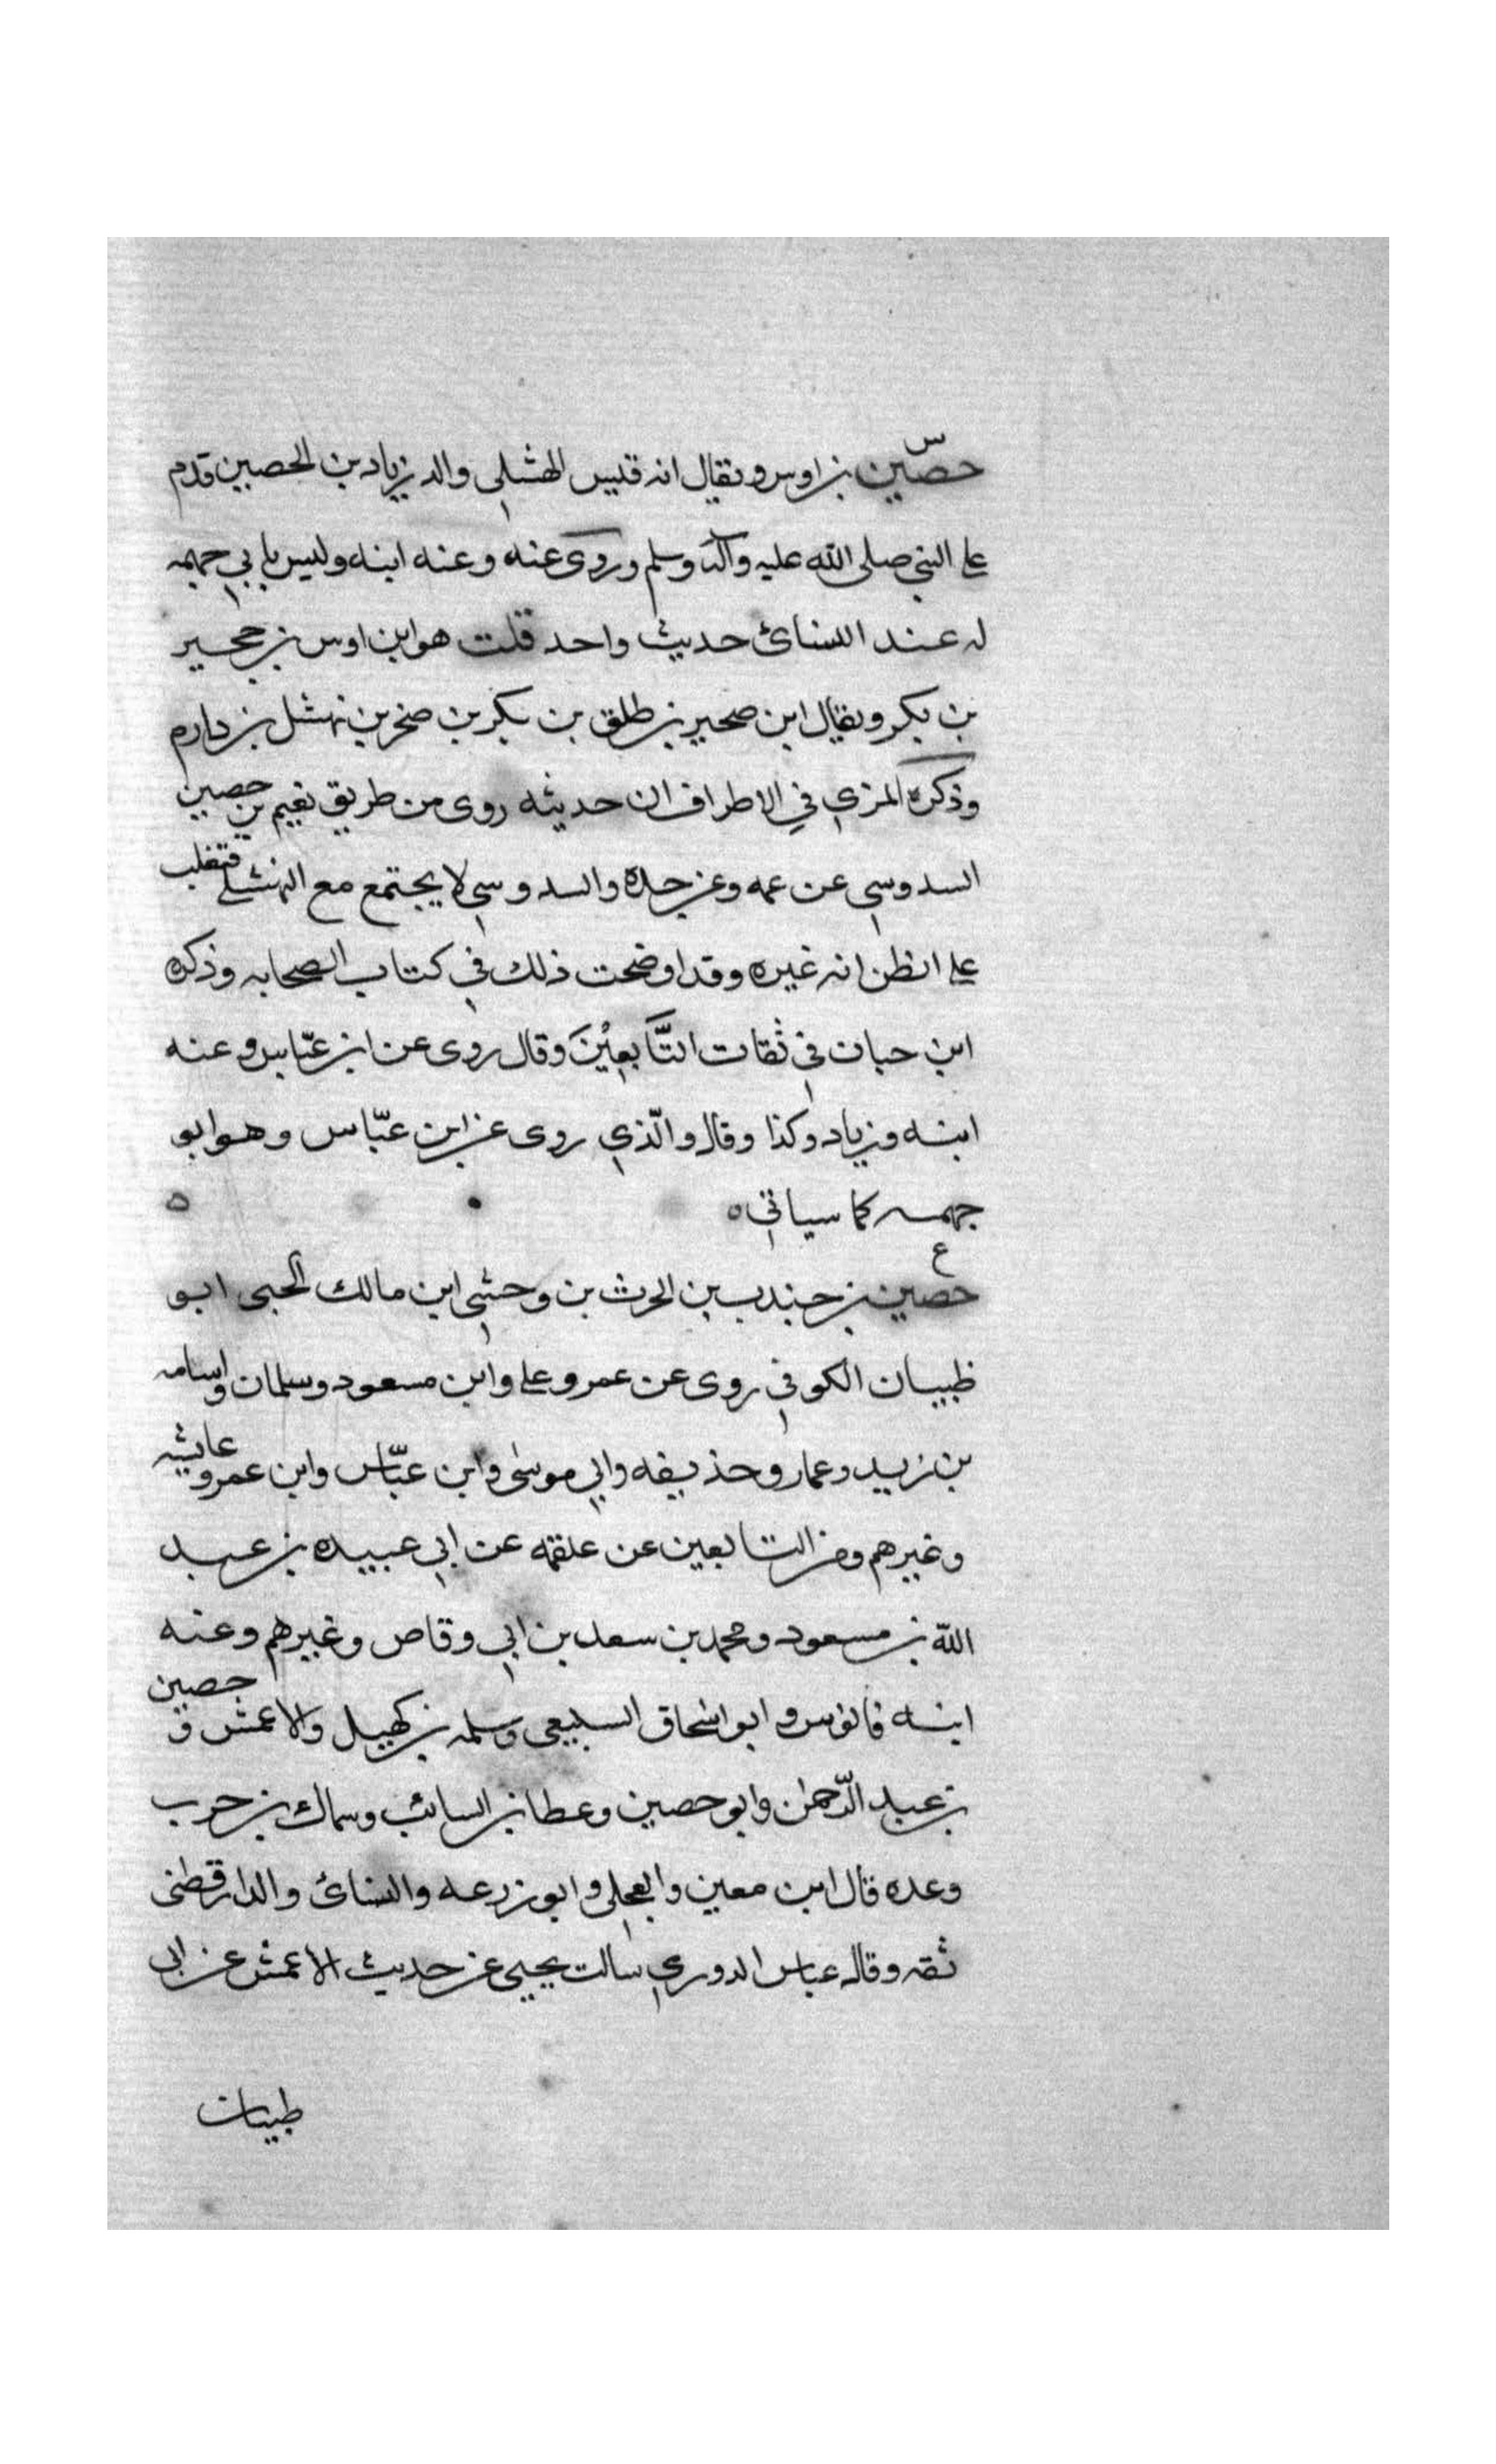 س
حصين بن اوس ويقال انه قيس النهشلي والد زياد بن الحصين قدم
على النبي صلى الله عليه وآله وسلم وروى عنه وعنه ابنه وليس بابي جهمه
له عند النسائ حديث واحد قلت هو ابن اوس بن حجير
بن بكر ويقال ابن صحير بن طلق بن بكر بن صخر بن نهشل بن دارم
وذكره المزي في الاطراف ان حديثه روى من طريق نعيم بن حصين
السدوسي عن عمه وعن جده والسدوسي لا يجتمع مع النهشلي فتغلب
على الظن انه غيره وقد اوضحت ذلك في كتاب الصحابه وذكره
ابن حبان في ثقات التَّابعِيْنَ وقال روى عن ابن عبّاس وعنه
ابنه وزياد وكذا وقال والّذي روى عن ابن عبّاس وهو ابو
جهمه كما سياتي ه
ع
حصين بن جندب بن الحرث بن وحشي ابن مالك الجبى ابو
ظبيان الكوفي روى عن عمر وعلى وابن مسعود وسلمان واسامه
بن زيد وعمار وحذيفه وابي موسى وابن عبّاس وابن عمر وعايشه
وغيرهم ومن التابعين عن علقمه عن ابي عبيده بن عبد
الله بن مسعود ومحمد بن سعد بن ابي وقاص وغيرهم وعنه
ابنه قابوس و ابو اسحاق السبيعي وسلمه بن كهيل والاعمش و حصين
بن عبد الرّحمن وابو حصين وعطا بن السائب وسماك بن حرب
وعده قال ابن معين والعجلي و ابو زرعه والنسائ والدارقطنى
ثقه وقال عباس الدوري سالت يحيى عن حديث الاعمش عن ابى
ظبيان